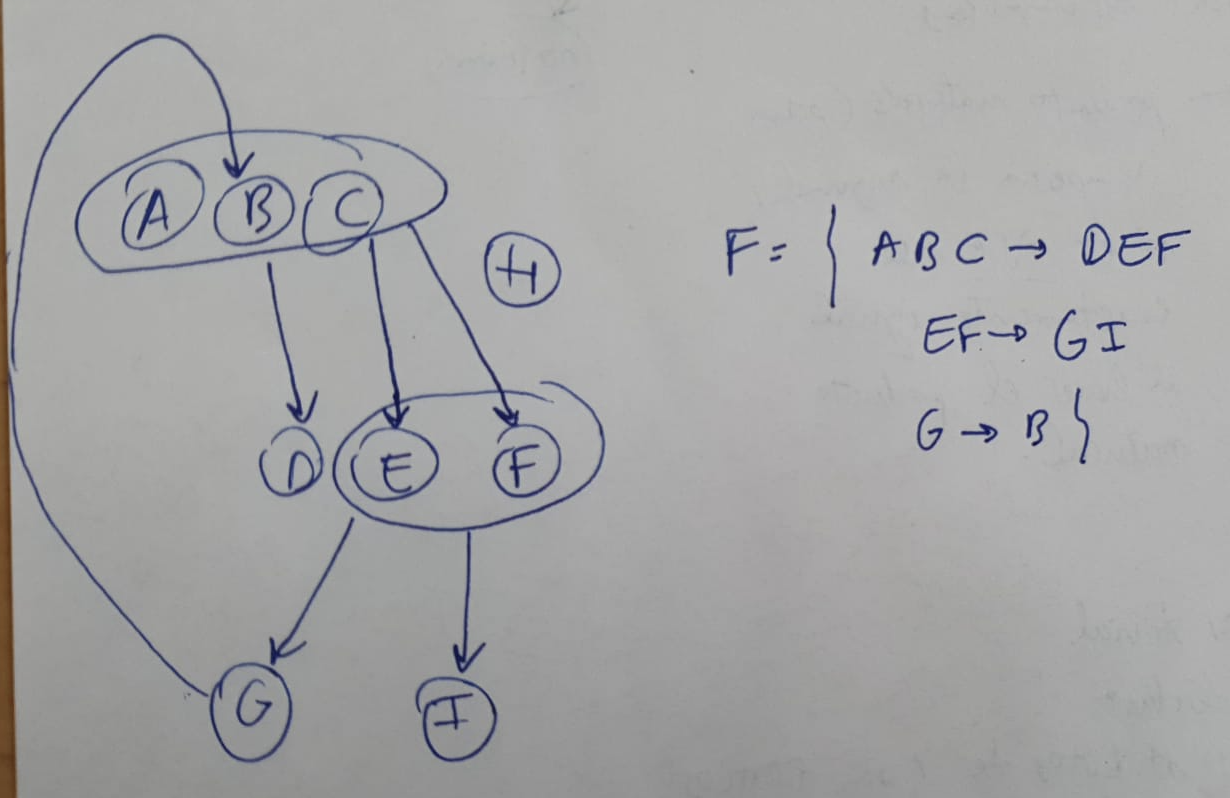 A B C
H
D E F
G I
F = { ABC → DEF
EF → GI
G → B }